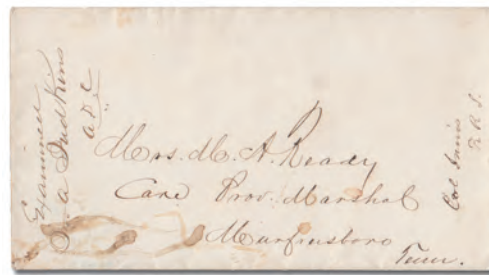 Examined
a Judkins
A D C
Mrs. M. A. Ready
Care Prov. Marshal
Murfreesboro
Tenn.
Col Innis